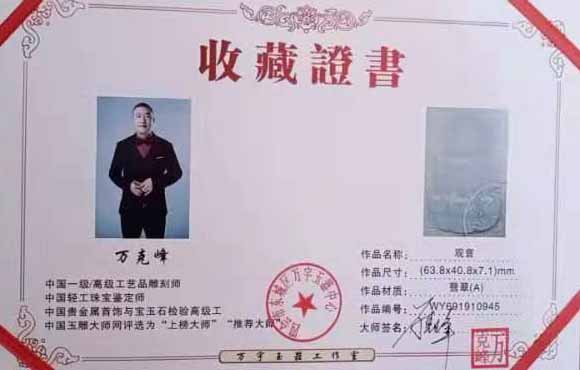 收藏證書
万克峰
中国一级/高级工艺品雕刻师
中国轻工珠宝鉴定师
中国贵金属首饰与宝玉石检验高级工
中国玉雕大师网评选为“上榜大师”“推荐大师”
作品名称: 观音
作品尺寸: (63.8x40.8x7.1)mm
作品材质: 翡翠(A)
作品编号: WY691910945
大师签名:
万克峰
万宇玉器工作室